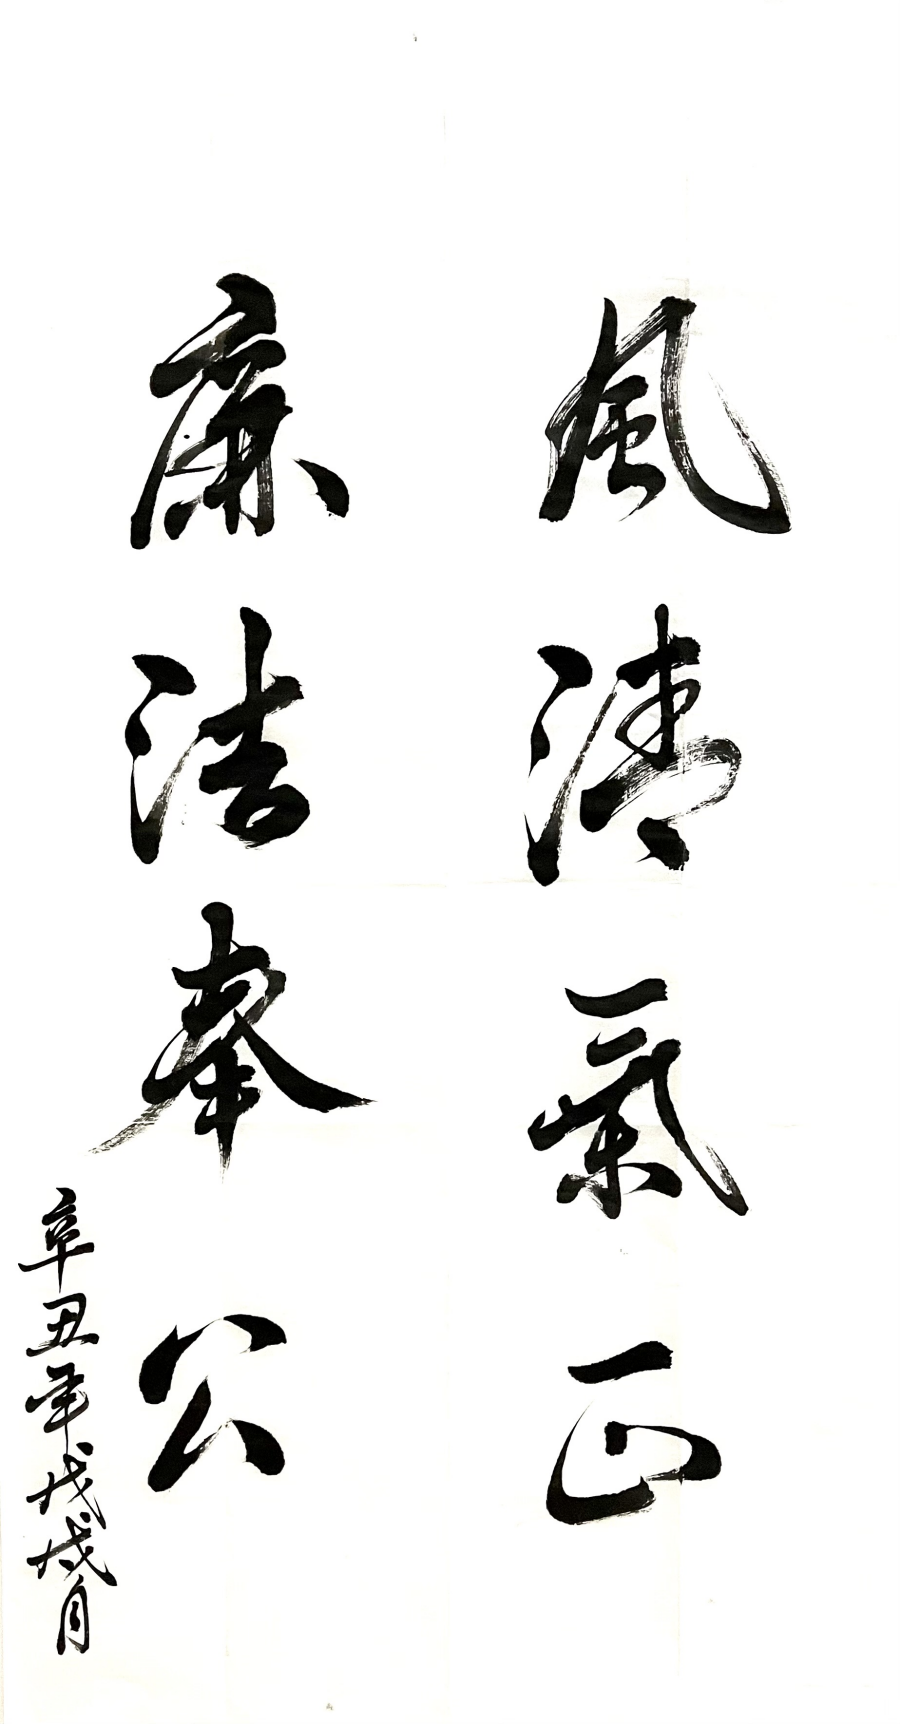 風清氣正
廉洁奉公
辛丑年戊戌月